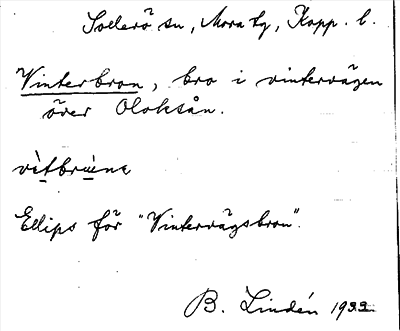 Sollerö sn, Mora tg, Kopp. l.
Vinterbron, bro i vintervägen
över Oloksån.
vìtbrùne
Ellips för "Vintervägsbron".
B. Lindén 1933